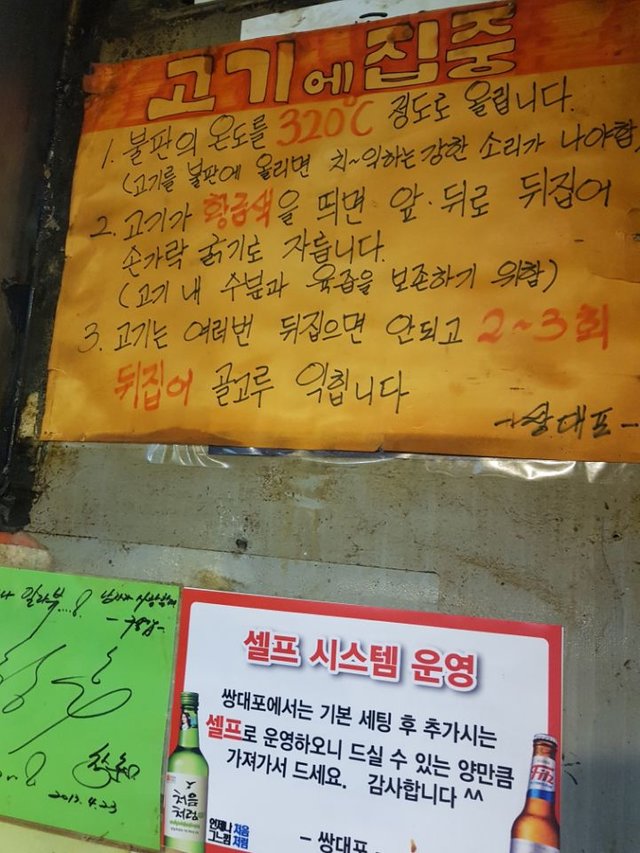 고기에 집중
1. 불판의 온도를 320℃ 정도로 올립니다.
(고기를 불판에 올리면 치~익하는 강한 소리가 나야함)
2. 고기가 황금색을 띄면 앞·뒤로 뒤집어
손가락 굵기로 자릅니다.
(고기 내 수분과 육즙을 보존하기 위함)
3. 고기는 여러번 뒤집으면 안되고 2~3회
뒤집어 골고루 익힙니다
-쌍대포-
2013.4.23
셀프 시스템 운영
쌍대포에서는 기본 세팅 후 추가시는
셀프로 운영하오니 드실 수 있는 양만큼
가져가서 드세요. 감사합니다 ^^
처음
처럼
언제나 처음
그느낌 처럼
- 쌍대포